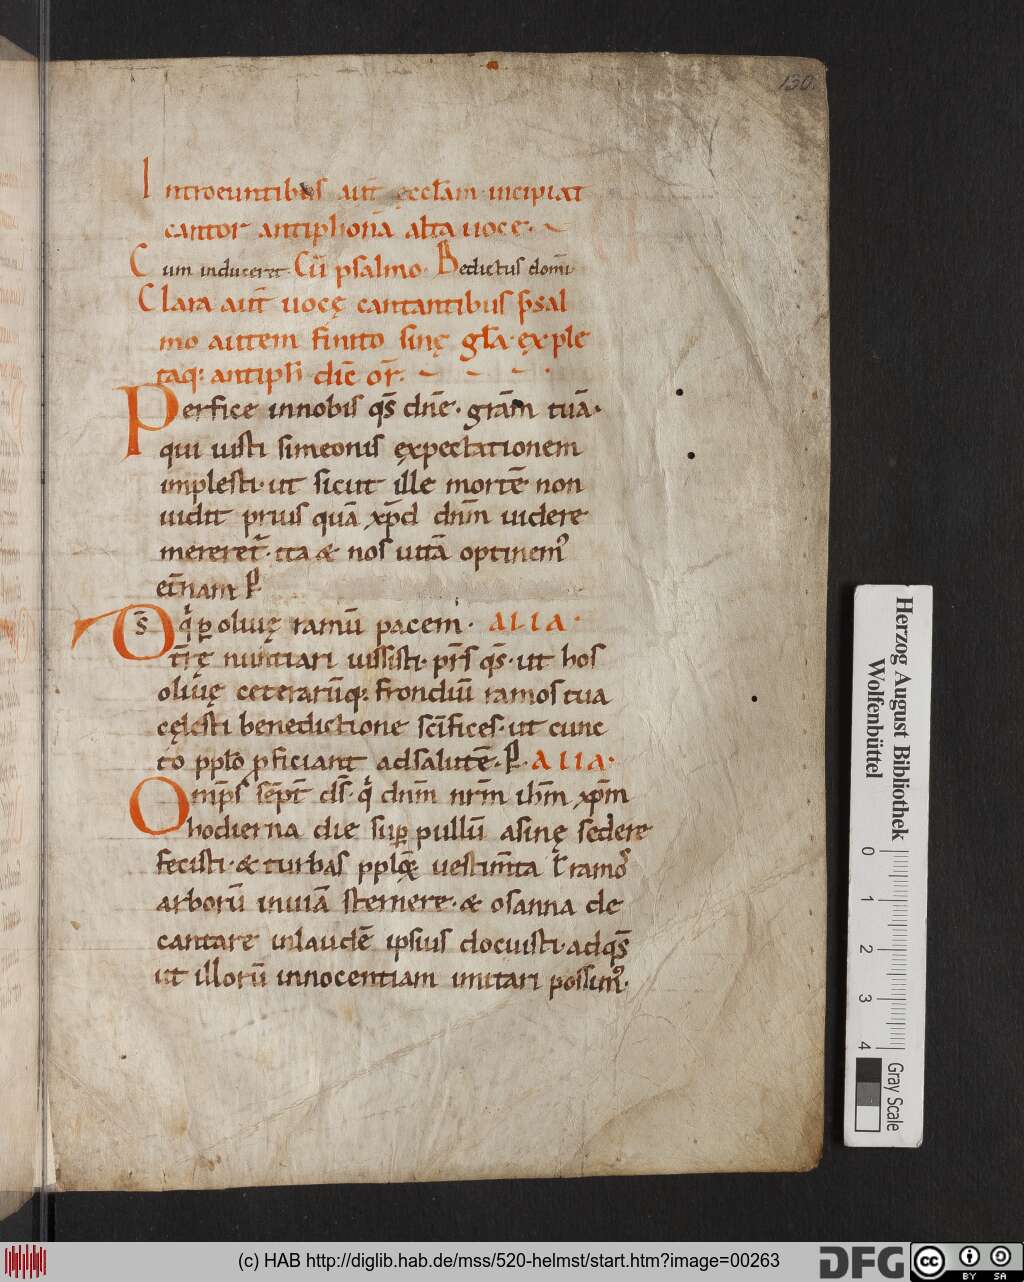 130.
Introeuntibus aut̄ ęccl̄am incipiat
cantor antiphonā alta uoce.
Cum inducerēt. Cū psalmo. Bedictus domī
Clara aut̄ uocę cantantibus psal
mo autem finito sinę gl̄a. ęxple
taq; antiph̄ dic̄ or̄.
Perfice innobis qs̄ dn̄e. grām tuā.
qui iusti simeonis ęxpectationem
implesti. ut sicut ille mortē non
uidit prius quā xp̄d dn̄m uidere
mereret̄. ita & nos uitā optinem᾽
et̄nam ꝑ
Ds̄ q͛ ꝑ oliuę ramū pacem. ALIA.
t̄rę nuntiari iussisti. prs̄ qs̄. ut hos
oliuę ceterarūq; frondiū ramos tua
cęlesti benedictione sc̄ifices. ut cunc
to ppl̄o ꝓficiant adsalutē. ꝑ. ALIA.
Omp̄s sēpt̄ ds̄. q͛ dn̄m nr̄m ih̄m xp̄m
hodierna die suꝑ pullū asinę sedere
fecisti. & turbas pplōꝝ uestim̄ta ł ramo᷒
arborū inuiā sternere. & osanna de
cantare inlaudē ipsius docuisti. adqs̄
ut illorū innocentiam imitari possim᾽.
Herzog August Bibliothek
Wolfenbüttel
0 1 2 3 4
Gray Scale
(c) HAB http://diglib.hab.de/mss/520-helmst/start.htm?image=00263
DFG
cc BY SA